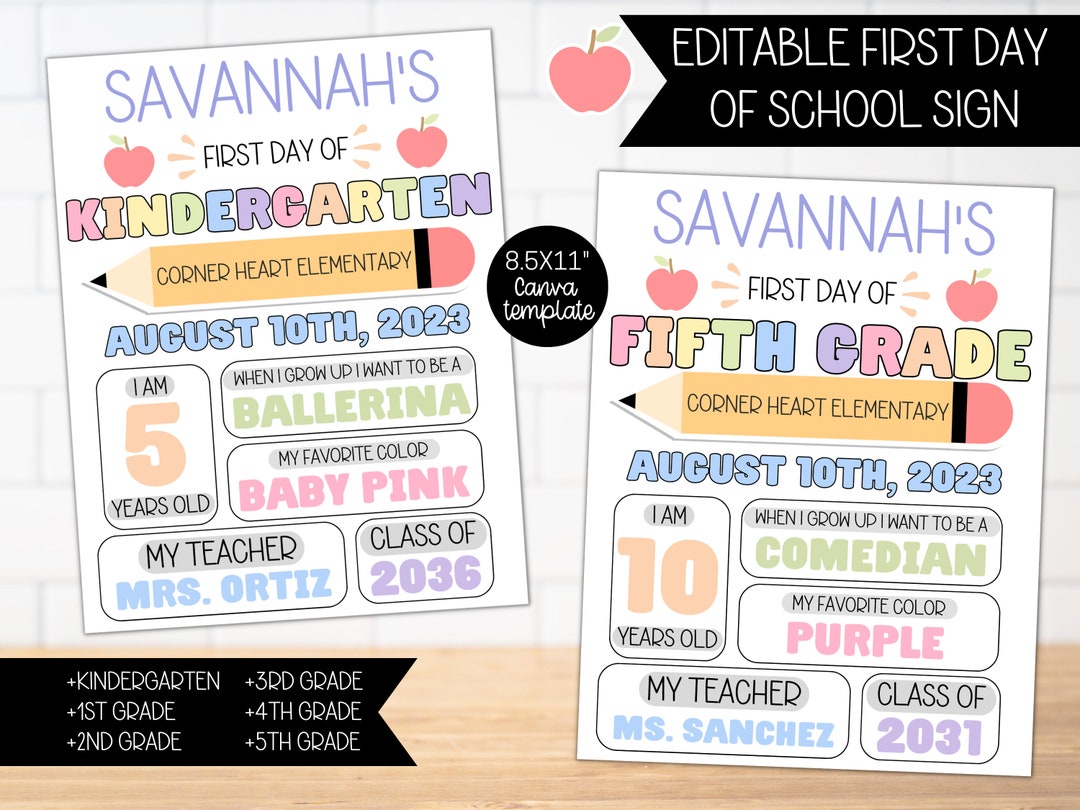 EDITABLE FIRST DAY
OF SCHOOL SIGN
SAVANNAH'S
FIRST DAY OF
KINDERGARTEN
CORNER HEART ELEMENTARY
AUGUST 10TH, 2023
I AM
5
YEARS OLD
WHEN I GROW UP I WANT TO BE A
BALLERINA
MY FAVORITE COLOR
BABY PINK
MY TEACHER
MRS. ORTIZ
CLASS OF
2036
8.5X11"
Canva
template
SAVANNAH'S
FIRST DAY OF
FIFTH GRADE
CORNER HEART ELEMENTARY
AUGUST 10TH, 2023
I AM
10
YEARS OLD
WHEN I GROW UP I WANT TO BE A
COMEDIAN
MY FAVORITE COLOR
PURPLE
MY TEACHER
MS. SANCHEZ
CLASS OF
2031
+KINDERGARTEN
+1ST GRADE
+2ND GRADE
+3RD GRADE
+4TH GRADE
+5TH GRADE